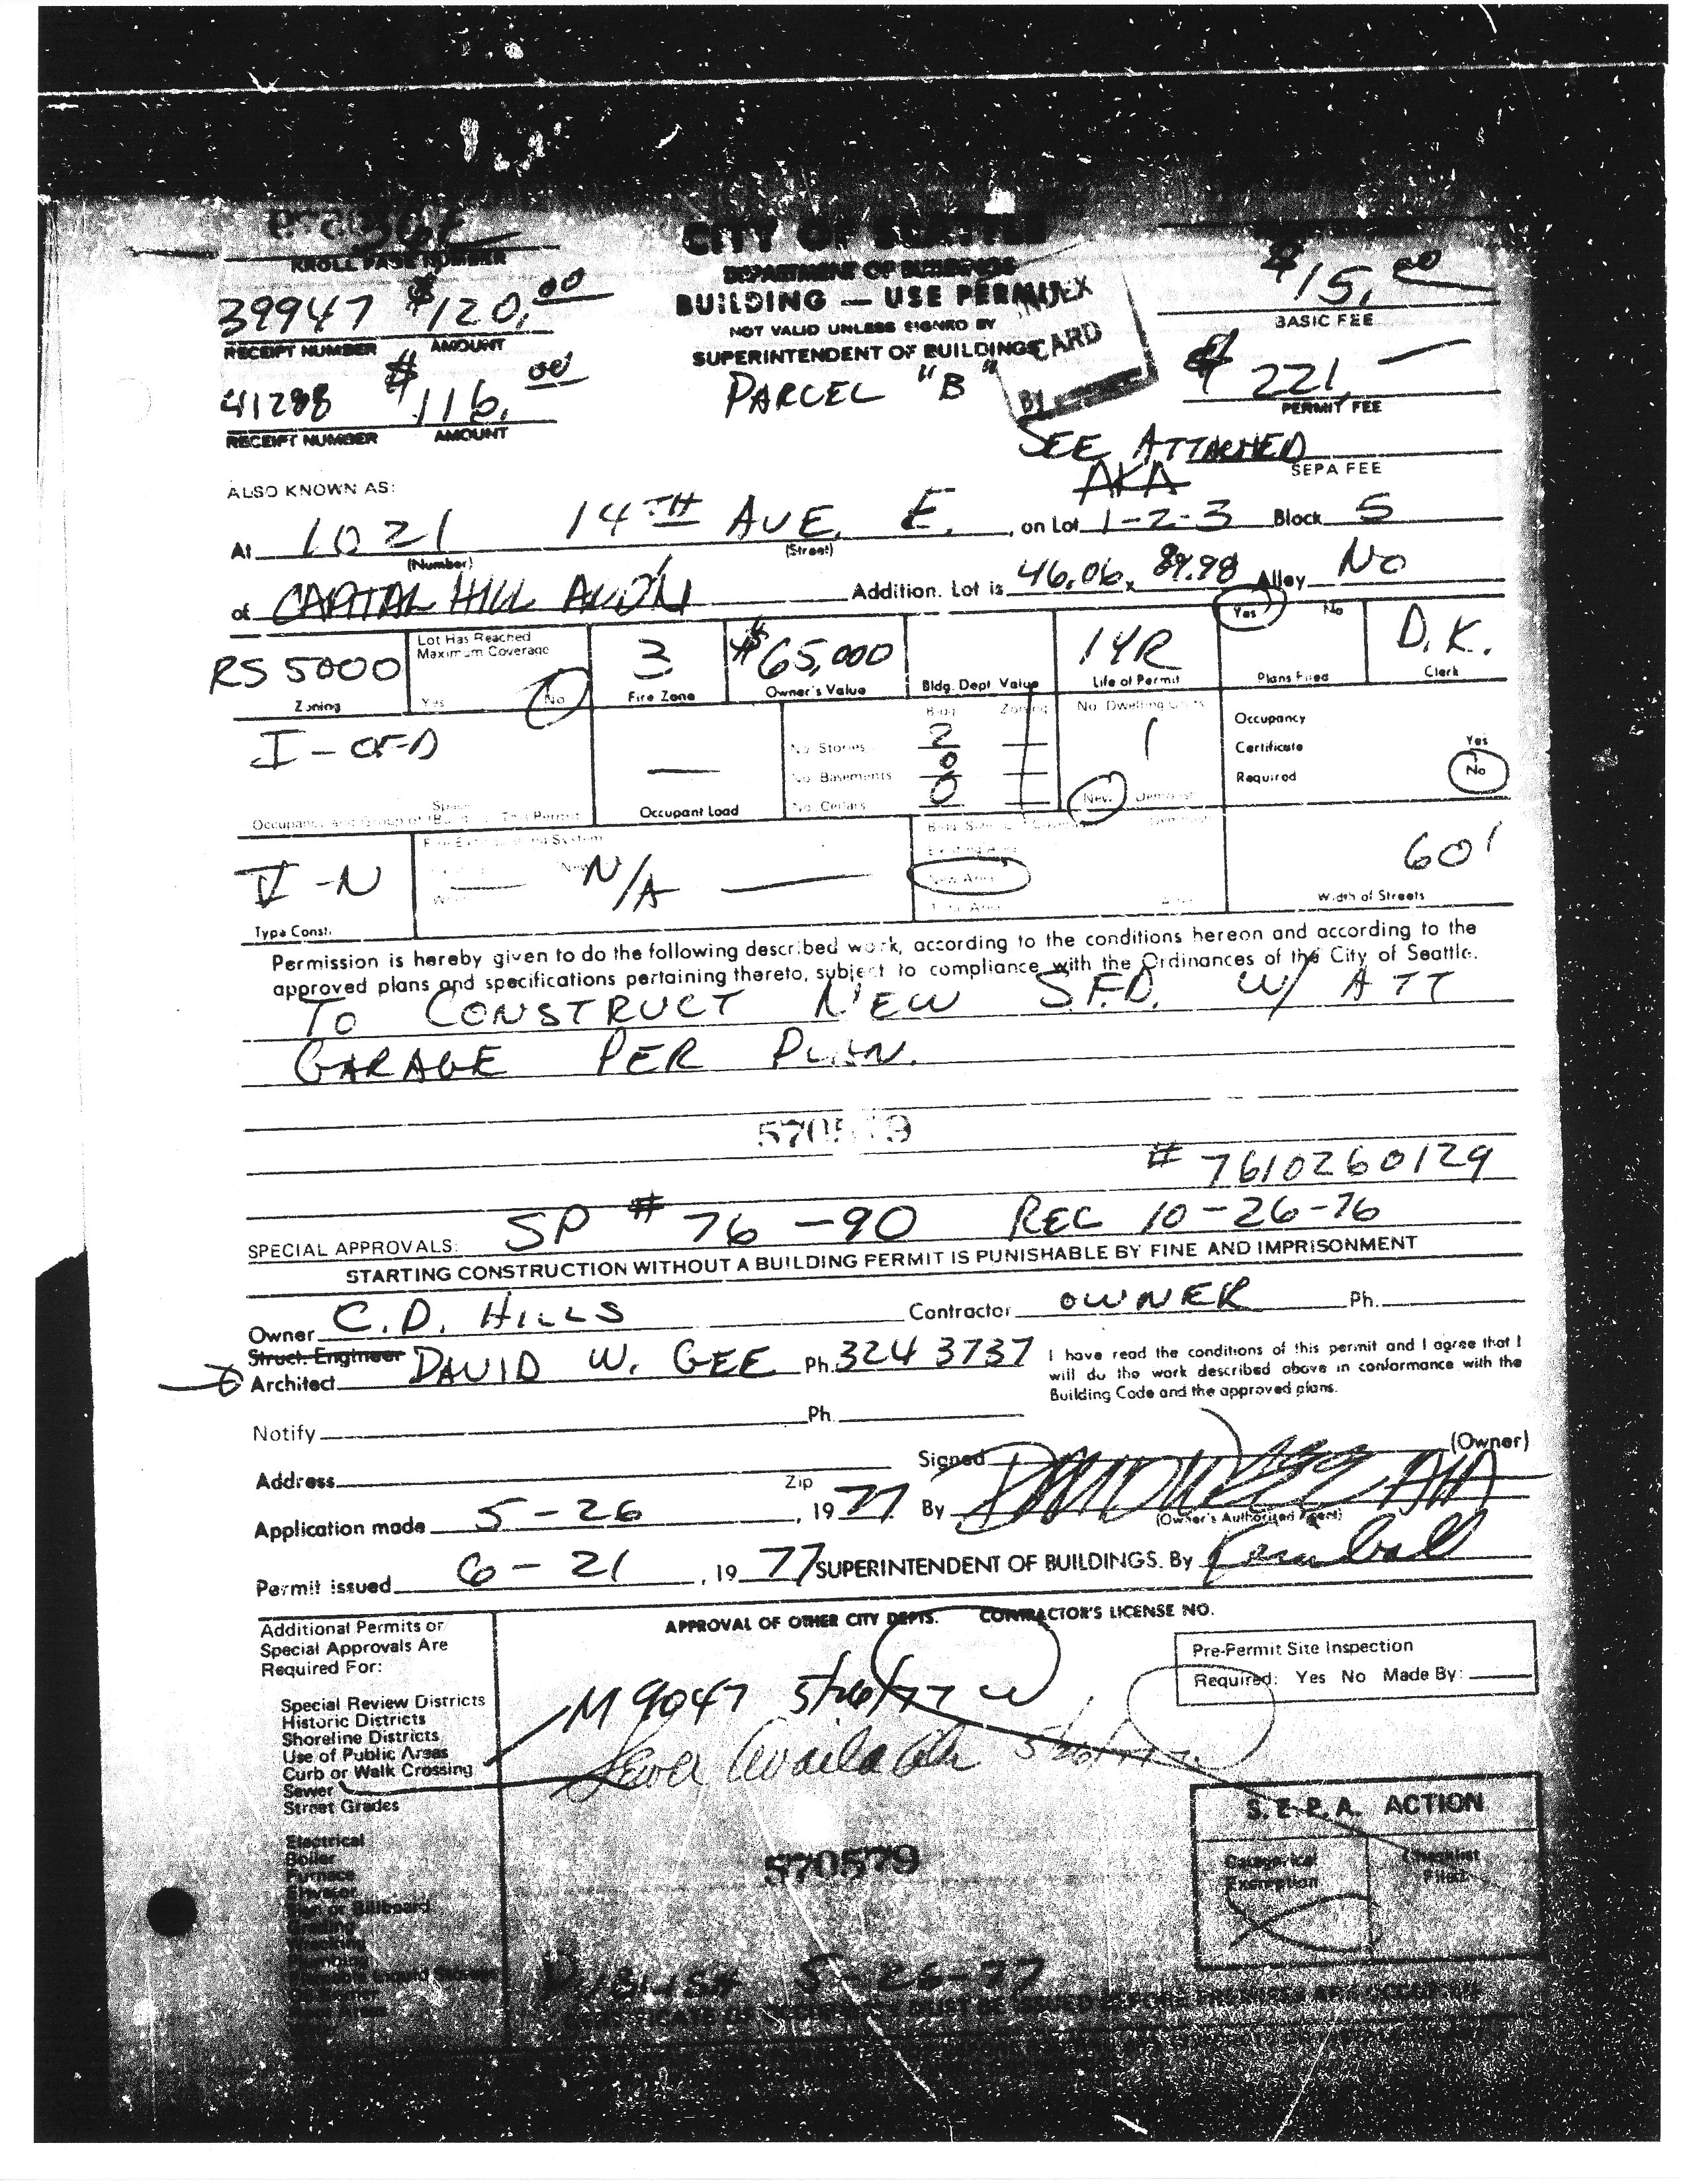 KROLL PAGE NUMBER
CITY OF SEATTLE
DEPARTMENT OF BUILDINGS
BUILDING — USE PERMIT
NOT VALID UNLESS SIGNED BY
SUPERINTENDENT OF BUILDINGS
INDEX
CARD
BY
PARCEL "B"
39947 $120.00
RECEIPT NUMBER AMOUNT
41288 $116.00
RECEIPT NUMBER AMOUNT
$15.00
BASIC FEE
$221.—
PERMIT FEE
SEE ATTACHED
SEPA FEE
AKA
ALSO KNOWN AS:
At 1021 14TH AVE. E. , on Lot 1-2-3 Block 5
(Number) (Street)
of CAPITAL HILL ADD'N Addition. Lot is 46.06 x 89.98 Alley No
RS 5000 Lot Has Reached Maximum Coverage 3 $65,000 1YR Yes No D.K.
Zoning Yes No Fire Zone Owner's Value Bldg. Dept Value Life of Permit Plans Filed Clerk
I-OF-D — Bldg Zoning No. Dwelling Units 1 Occupancy
No. Stories 2 — Certificate Yes
No. Basements 0 — Required No
Occupant Load No. Cellars 0 — New
V-N N/A — New Area 60'
Type Const. Width of Streets
Permission is hereby given to do the following described work, according to the conditions hereon and according to the
approved plans and specifications pertaining thereto, subject to compliance with the Ordinances of the City of Seattle.
TO CONSTRUCT NEW S.F.D. W/ ATT
GARAGE PER PLAN.
# 7610260129
SPECIAL APPROVALS: SP # 76-90 REC 10-26-76
STARTING CONSTRUCTION WITHOUT A BUILDING PERMIT IS PUNISHABLE BY FINE AND IMPRISONMENT
Owner C.D. HILLS Contractor OWNER Ph.
Struct. Engineer
Architect DAVID W. GEE Ph. 324 3737
I have read the conditions of this permit and I agree that I
will do the work described above in conformance with the
Building Code and the approved plans.
Notify Ph.
Signed (Owner)
Address Zip
Application made 5-26 , 1977 By
(Owner's Authorized Agent)
Permit issued 6-21 , 1977 SUPERINTENDENT OF BUILDINGS. By
Additional Permits or
Special Approvals Are
Required For:
APPROVAL OF OTHER CITY DEPTS. CONTRACTOR'S LICENSE NO.
Pre-Permit Site Inspection
Required: Yes No Made By:
Special Review Districts
Historic Districts
Shoreline Districts
Use of Public Areas
Curb or Walk Crossing
Sewer
Street Grades
Electrical
Boiler
Furnace
Elevator
Sign or Billboard
Grading
M 9047 5/26/77
Sewer Available 5/26/77
S.E.P.A. ACTION
Categorical
Exemption
Checklist
Filed
570579
PUBLISH 5-26-77